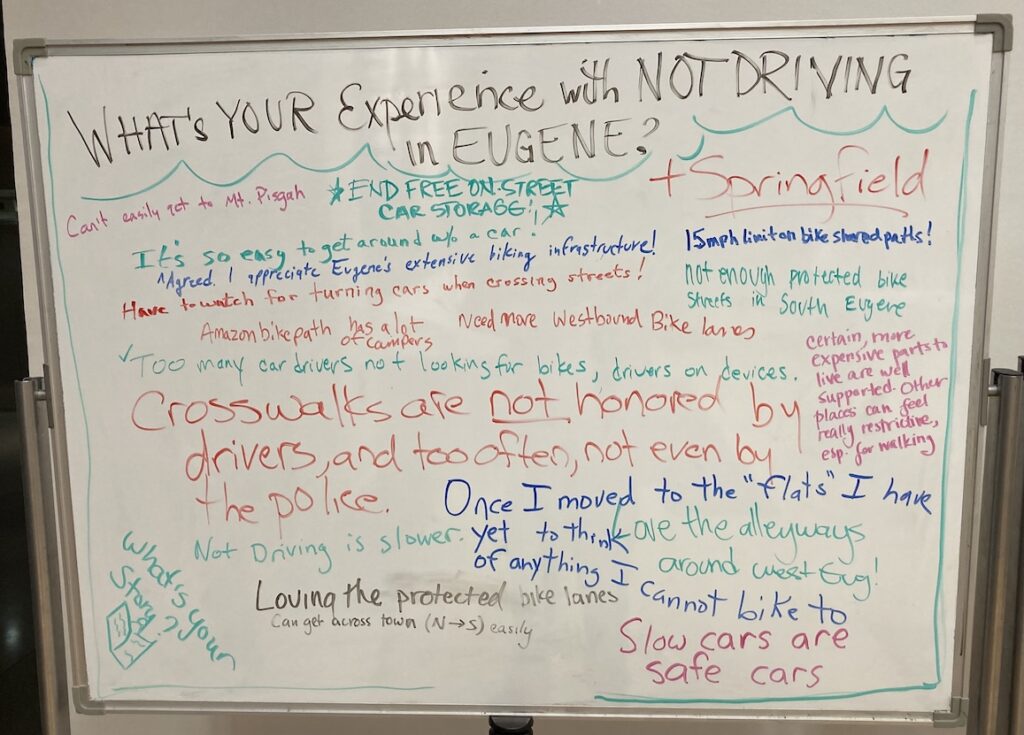 WHAT'S YOUR Experience with NOT DRIVING
in EUGENE?
+ Springfield
Can't easily get to Mt. Pisgah
☆END FREE ON-STREET
CAR STORAGE!☆
It's so easy to get around w/o a car!
^Agreed. I appreciate Eugene's extensive biking infrastructure!
15mph limit on bike shared paths!
Have to watch for turning cars when crossing streets!
not enough protected bike
streets in South Eugene
Amazon bike path has a lot
of campers
Need more Westbound Bike lanes
certain, more
expensive parts to
live are well
supported. Other
places can feel
really restrictive,
esp. for walking
✓Too many car drivers not looking for bikes, drivers on devices.
Crosswalks are not honored by
drivers, and too often, not even by
the police.
Once I moved to the "flats" I have
yet to think
of anything I
cannot bike to
Love the alleyways
around west Eug!
Not Driving is slower.
What's your
Story?
Loving the protected bike lanes
Can get across town (N→S) easily
Slow cars are
safe cars